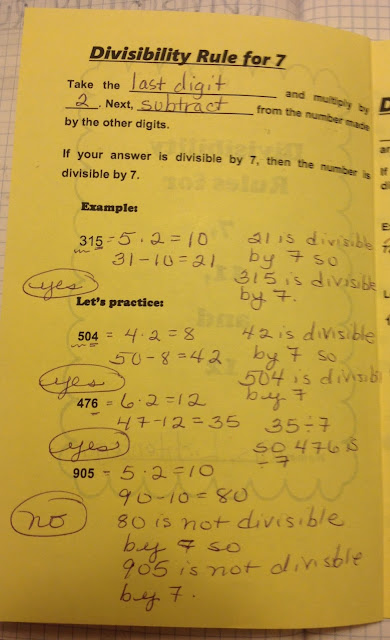 Divisibility Rule for 7
Take the last digit and multiply by
2. Next, subtract from the number made
by the other digits.
If your answer is divisible by 7, then the number is
divisible by 7.
Example:
315 = 5 · 2 = 10 21 is divisible
31 - 10 = 21 by 7 so
yes 315 is divisible
by 7.
Let's practice:
504 = 4 · 2 = 8 42 is divisible
50 - 8 = 42 by 7 so
yes 504 is divisibl
by 7
476 = 6 · 2 = 12
47 - 12 = 35 35 ÷ 7
yes so 476 is
÷ 7
905 - 5 · 2 = 10
90 - 10 = 80
no 80 is not divisible
by 7 so
905 is not divisible
by 7.